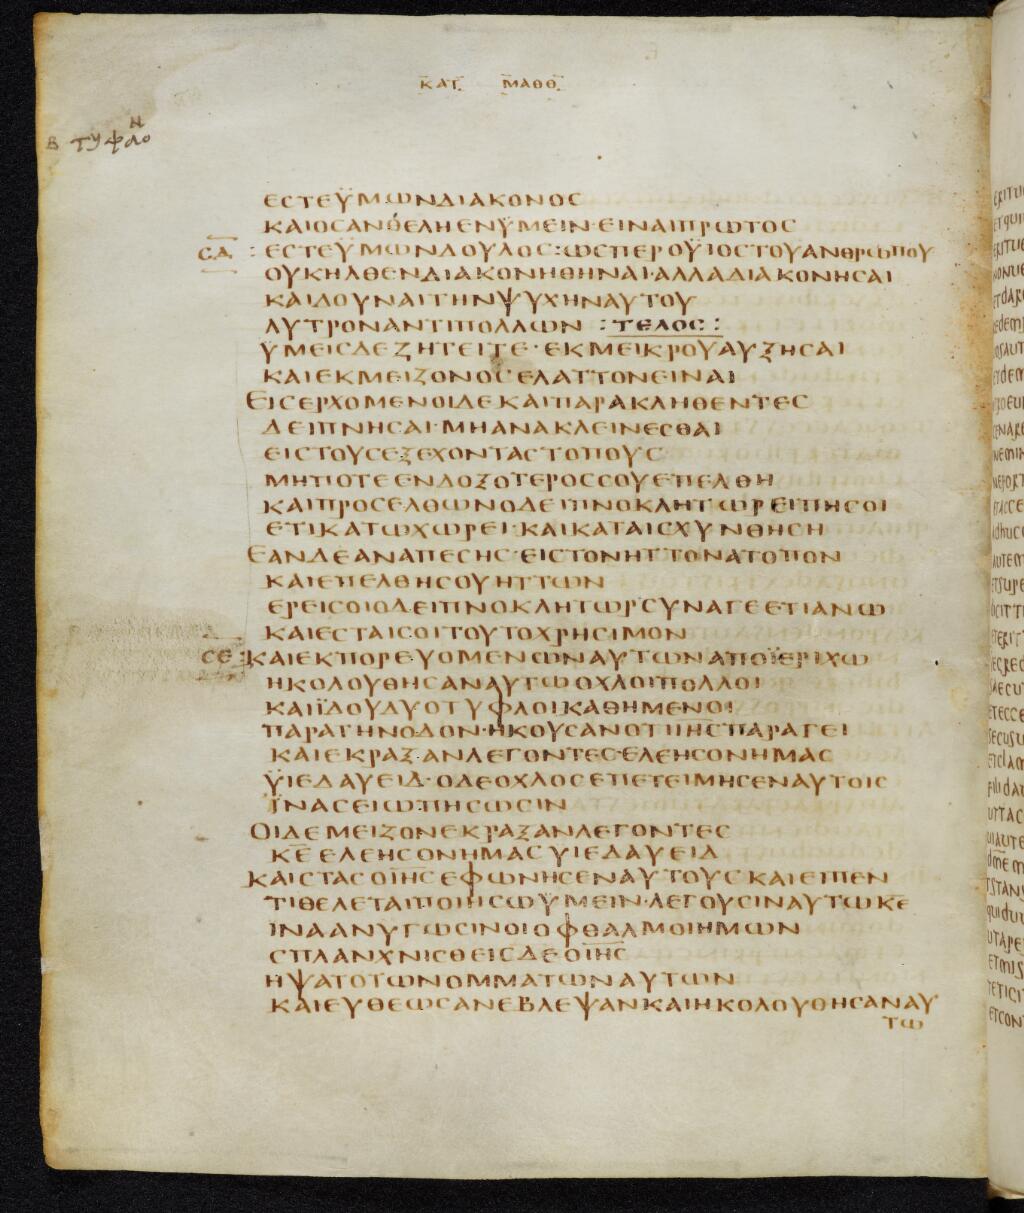 ΚΑΤ ΜΑΘΘ
Β ΤΥΦΛΟ
Ν
ΕϹΤΕΫΜΩΝΔΙΑΚΟΝΟϹ
ΚΑΙΟϹΑΝΘΕΛΗΕΝΫΜΕΙΝ·ΕΙΝΑΙΠΡΩΤΟϹ
ϹΑ :ΕϹΤΕΫΜΩΝΔΟΥΛΟϹ:ΩϹΠΕΡΟΫΙΟϹΤΟΥΑΝΘΡΩΠΟΥ
ΟΥΚΗΛΘΕΝΔΙΑΚΟΝΗΘΗΝΑΙ·ΑΛΛΑΔΙΑΚΟΝΗϹΑΙ
ΚΑΙΔΟΥΝΑΙΤΗΝΨΥΧΗΝΑΥΤΟΥ
ΛΥΤΡΟΝΑΝΤΙΠΟΛΛΩΝ :ΤΕΛΟϹ:
ΫΜΕΙϹΔΕΖΗΤΕΙΤΕ·ΕΚΜΕΙΚΡΟΥΑΥΞΗϹΑΙ
ΚΑΙΕΚΜΕΙΖΟΝΟϹΕΛΑΤΤΟΝΕΙΝΑΙ
ΕΙϹΕΡΧΟΜΕΝΟΙΔΕΚΑΙΠΑΡΑΚΛΗΘΕΝΤΕϹ
ΔΕΙΠΝΗϹΑΙ·ΜΗΑΝΑΚΛΕΙΝΕϹΘΑΙ
ΕΙϹΤΟΥϹΕΞΕΧΟΝΤΑϹΤΟΠΟΥϹ
ΜΗΠΟΤΕΕΝΔΟΞΟΤΕΡΟϹϹΟΥΕΠΕΛΘΗ
ΚΑΙΠΡΟϹΕΛΘΩΝΟΔΕΙΠΝΟΚΛΗΤΩΡΕΙΠΗϹΟΙ
ΕΤΙΚΑΤΩΧΩΡΕΙ·ΚΑΙΚΑΤΑΙϹΧΥΝΘΗϹΗ
ΕΑΝΔΕΑΝΑΠΕϹΗϹ·ΕΙϹΤΟΝΗΤΤΟΝΑΤΟΠΟΝ
ΚΑΙΕΠΕΛΘΗϹΟΥΗΤΤΩΝ
ΕΡΕΙϹΟΙΟΔΕΙΠΝΟΚΛΗΤΩΡϹΥΝΑΓΕΕΤΙΑΝΩ
ΚΑΙΕϹΤΑΙϹΟΙΤΟΥΤΟΧΡΗϹΙΜΟΝ
ϹΕ :ΚΑΙΕΚΠΟΡΕΥΟΜΕΝΩΝΑΥΤΩΝΑΠΟΪΕΡΙΧΩ
ΗΚΟΛΟΥΘΗϹΑΝΑΥΤΩΟΧΛΟΙΠΟΛΛΟΙ
ΚΑΙΪΔΟΥΔΥΟΤΥΦΛΟΙΚΑΘΗΜΕΝΟΙ
ΠΑΡΑΤΗΝΟΔΟΝ·ΗΚΟΥϹΑΝΟΤΙΙΗϹΠΑΡΑΓΕΙ
ΚΑΙΕΚΡΑΞΑΝΛΕΓΟΝΤΕϹ·ΕΛΕΗϹΟΝΗΜΑϹ
ΫΙΕΔΑΥΕΙΔ·ΟΔΕΟΧΛΟϹΕΠΕΤΕΙΜΗϹΕΝΑΥΤΟΙϹ
ΪΝΑϹΕΙΩΠΗϹΩϹΙΝ
ΟΙΔΕΜΕΙΖΟΝΕΚΡΑΞΑΝΛΕΓΟΝΤΕϹ
ΚΕ ΕΛΕΗϹΟΝΗΜΑϹΥΙΕΔΑΥΕΙΔ
ΚΑΙϹΤΑϹΟΙΗϹΕΦΩΝΗϹΕΝΑΥΤΟΥϹΚΑΙΕΙΠΕΝ
ΤΙΘΕΛΕΤΑΙΠΟΙΗϹΩΫΜΕΙΝ·ΛΕΓΟΥϹΙΝΑΥΤΩΚΕ
ΙΝΑΑΝΥΓΩϹΙΝΟΙΟΦΘΑΛΜΟΙΗΜΩΝ
ϹΠΛΑΝΧΝΙϹΘΕΙϹΔΕΟΙΗϹ
ΗΨΑΤΟΤΩΝΟΜΜΑΤΩΝΑΥΤΩΝ
ΚΑΙΕΥΘΕΩϹΑΝΕΒΛΕΨΑΝΚΑΙΗΚΟΛΟΥΘΗϹΑΝΑΥ
ΤΩ